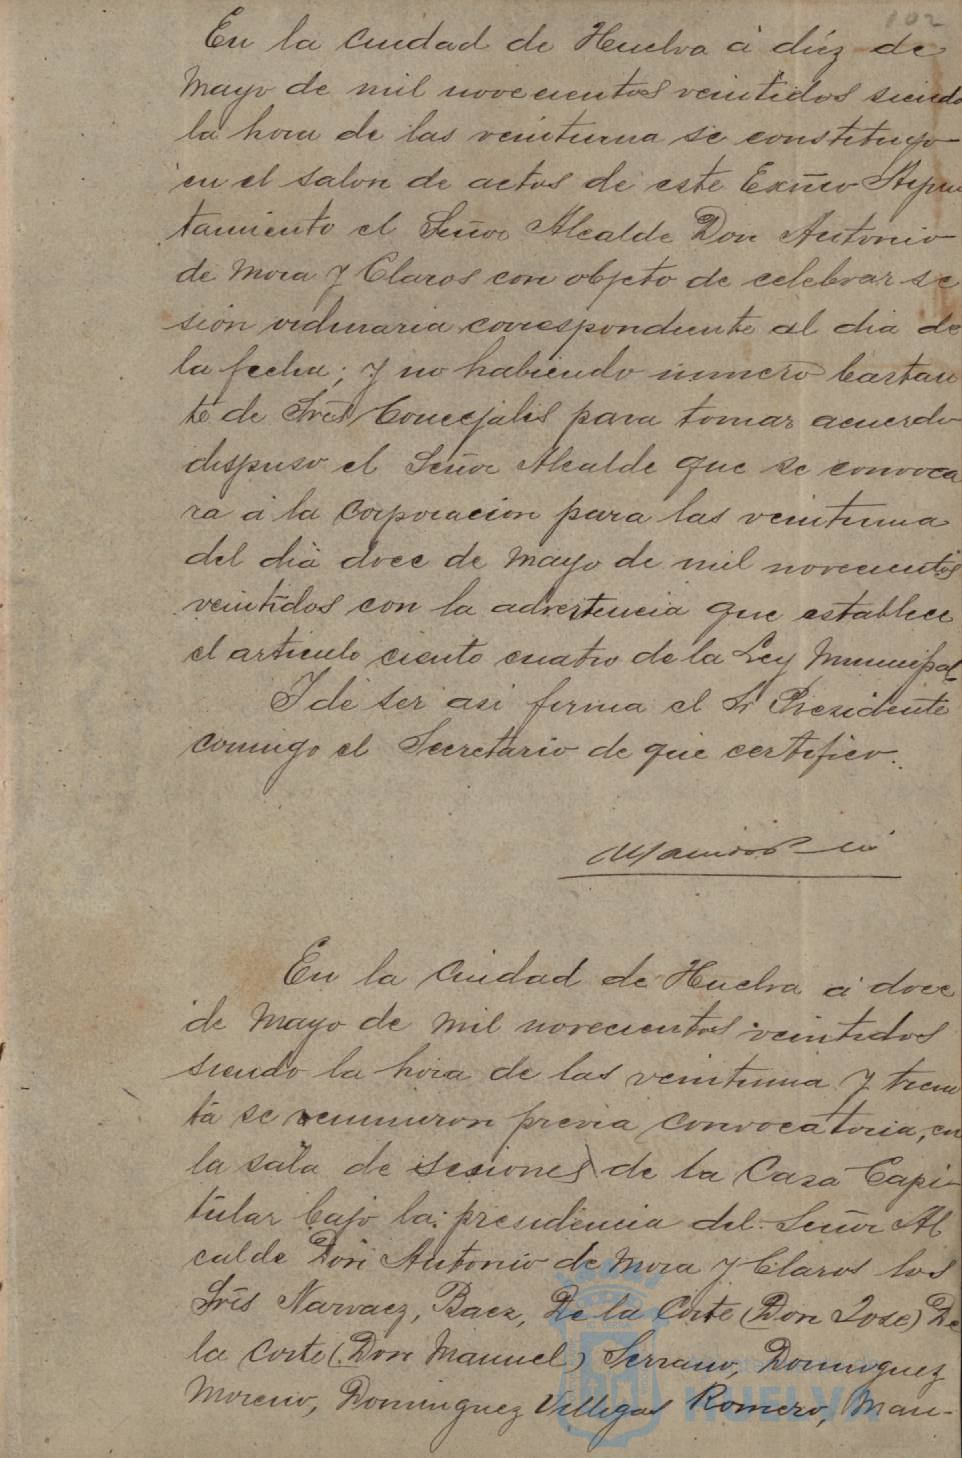 102
En la ciudad de Huelva á diéz de
Mayo de mil novecientos veintidos siendo
la hora de las veintiuna se constituyo
en el salon de actos de este Excmo Ayun
tamiento el Señor Alcalde Don Antonio
de Mora y Claros con objeto de celebrar se
sión ordinaria correspondiente al dia de
la fecha; y no habiendo número bastan
te de Sres Concejales para tomar acuerdo
dispuso el Señor Alcalde que se convoca
ra á la Corporación para las veintiuna
del dia doce de Mayo de mil novecientos
veintidos con la advertencia que establece
el articulo ciento cuatro de la Ley Municipal
Y de ser asi firma el Sr Presidente
conmigo el Secretario de que certifico.
En la Ciudad de Huelva á doce
de Mayo de mil novecientos veintidos
siendo la hora de las veintiuna y trein
ta se reunieron previa convocatoria, en
la sala de sesiones de la Casa Capi-
tular bajo la presidencia del Señor Al
calde Don Antonio de Mora y Claros los
Sres Narvaez, Baez, De la Corte (Don Jose) De
la Corte (Don Manuel) Serrano, Dominguez
Moreno, Dominguez Villegas Romero, Man-
HUELVA